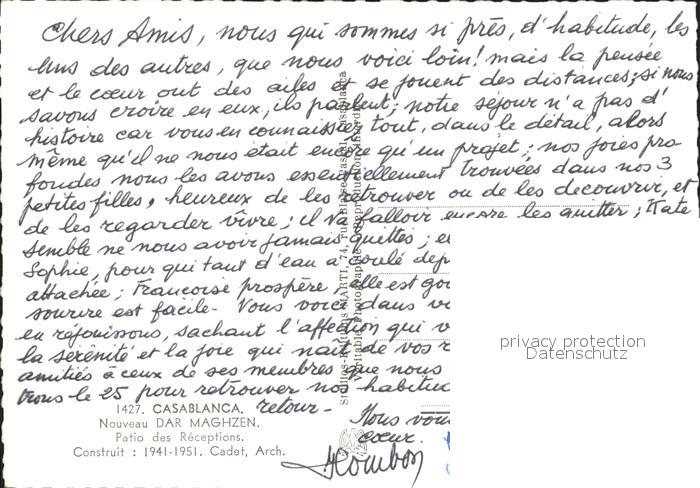 Chers Amis, nous qui sommes si près, d'habitude, les
uns des autres, que nous voici loin! mais la pensée
et le cœur ont des ailes et se jouent des distances; si nous
savons croire en eux, ils parlent; notre séjour n'a pas d'
histoire car vous en connaissiez tout, dans le détail, alors
même qu'il ne nous était encore qu'un projet; nos joies pro
fondes nous les avons essentiellement trouvées dans nos 3
petites filles, heureux de les retrouver ou de les découvrir, et
de les regarder vivre; il va falloir encore les quitter; Kate
semble ne nous avoir jamais quittés; e
Sophie, pour qui tant d'eau a coulé dep
attachée; Françoise prospère, elle est go
sourire est facile. Vous voici dans v
en réjouissons, sachant l'affection qui v
la sérénité et la joie qui naît de vos
amitiés à ceux de ses membres que nous
le 25 pour retrouver nos habitud
retour.
Nous vou
cœur.
1427. CASABLANCA.
Nouveau DAR MAGHZEN.
Patio des Réceptions.
Construit : 1941-1951. Cadet, Arch.
privacy protection
Datenschutz